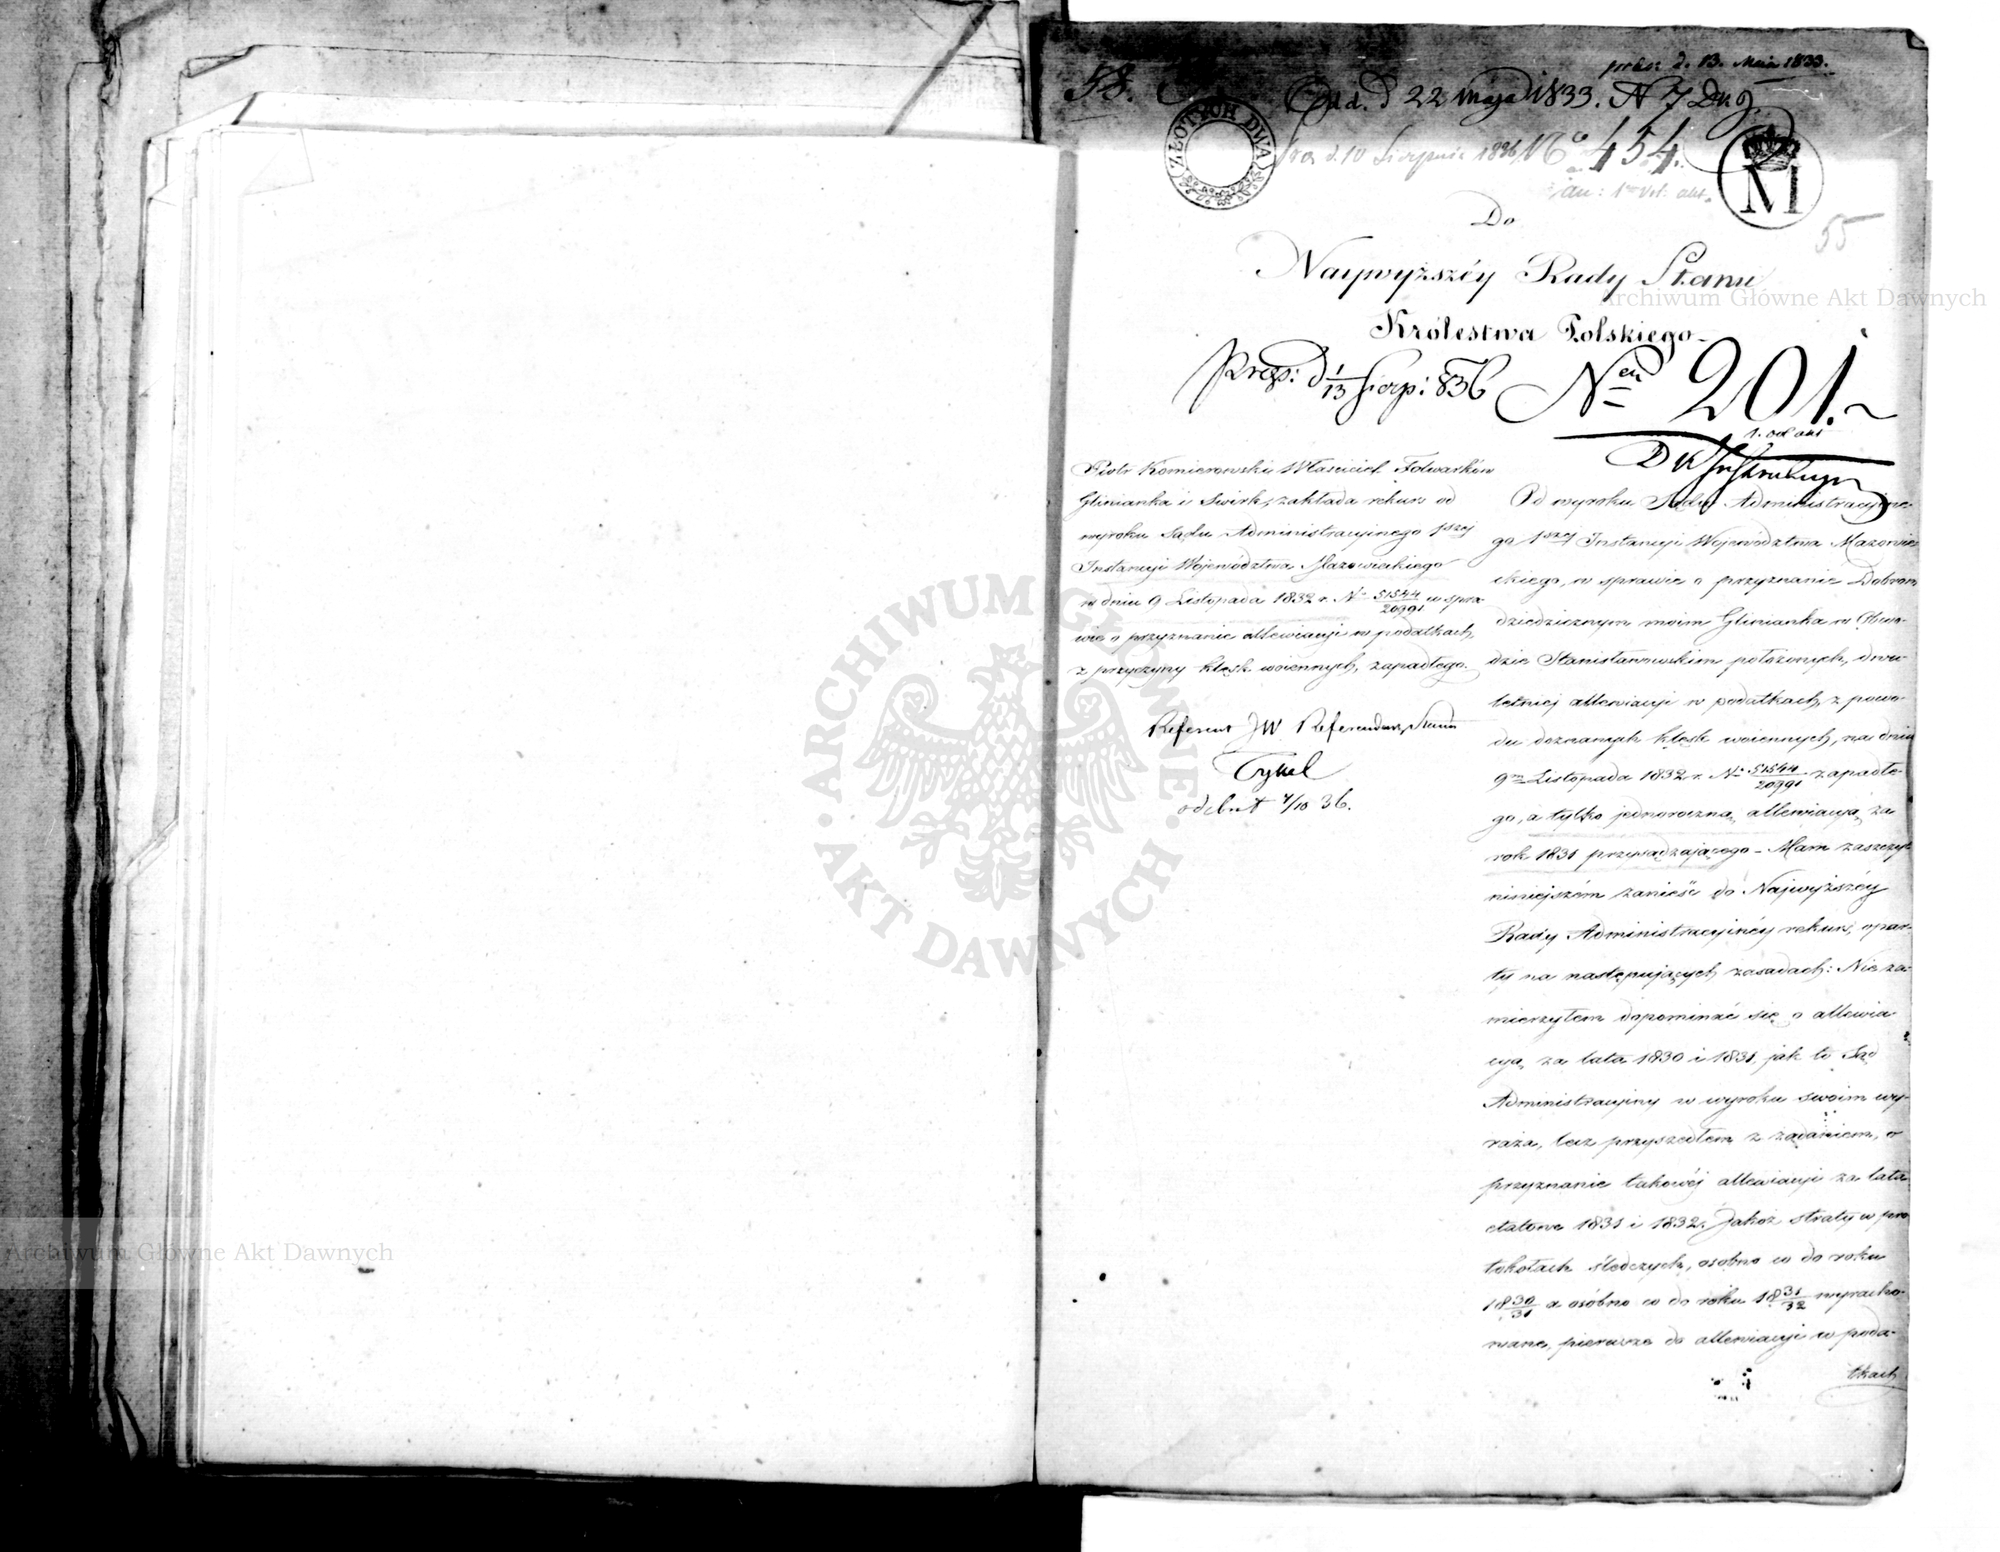 58.
prdo: d. 13. Maja 1833.
d. 22 Maja 1833. N 7
ZŁOTYCH DWA
d. 10 Sierpnia 1836 N° 454.
1 Vol: akt.
M
55
Do
Naywyższéy Rady Stanu
Królestwa Polskiego
d 1/13 Sierp: 836 N 201.
1. od akt
Piotr Komierowski Właściciel Folwarków
Glinianka i Swirk, zakłada rekurs od
wyroku Sądu Administracyinego 1szej
Instancyi Województwa Mazowieckiego
w dniu 9 Listopada 1832 r. Nr 51544/20991 w spra-
wie o przyznanie allewiacyi w podatkach,
z przyczyny klęsk woiennych, zapadłego.
Referent JW Referendarz Stanu
Tykel
odebrał 4/10 36.
Od wyroku Sądu Administracyine-
go 1szej Instancyi Województwa Mazowie-
ckiego, w sprawie o przyznanie Dobrom
dziedzicznym moim Glinianka w Obwo-
dzie Stanisławowskim położonych, dwu-
letniej allewiacyi w podatkach, z powo-
du doznanych klęsk woiennych, na dniu
9m Listopada 1832 r. Nr 51544/20991 zapadłe-
go, a tylko jednoroczną allewiacyą za
rok 1831 przysądzającego - Mam zaszczyt
niniejszém zanieść do Najwyższéy
Rady Administracyinéy rekurs, opar-
ty na następujących zasadach: Nie za-
mierzyłem dopominać się o allewia-
cyą za lata 1830 i 1831, jak to Sąd
Administracyiny w wyroku swoim wy-
raża, lecz przyszedłem z żądaniem, o
przyznanie takowéj allewiacyi za lata
etatowe 1831 i 1832. Jakoż straty w pro-
tokołach śledczych, osobno co do roku
1830/31 a osóbno co do roku 1831/32 wyracho-
wane, pierwsze do allewiacyi w poda-
tkach
Archiwum Główne Akt Dawnych
ARCHIWUM GŁÓWNE AKT DAWNYCH
Archiwum Główne Akt Dawnych